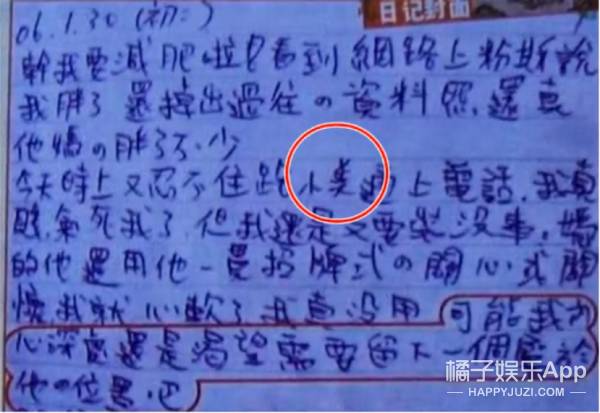 日记封面
06.1.30 (初二)
幹我要減肥啦!看到網路上粉斯說
我胖了還掉出過往の資料照還真
他媽の胖了不少
今天晚上又忍不住跟小美通上電話,我真
氣死我了但我還是又要裝没事,媽
的他還用他一貫招牌式の關心或關
懷我就心軟了我真没用可能我內
心深處還是渴望需要留下一個屬於
他の位置吧
橘子娱乐App
HAPPYJUZI.COM